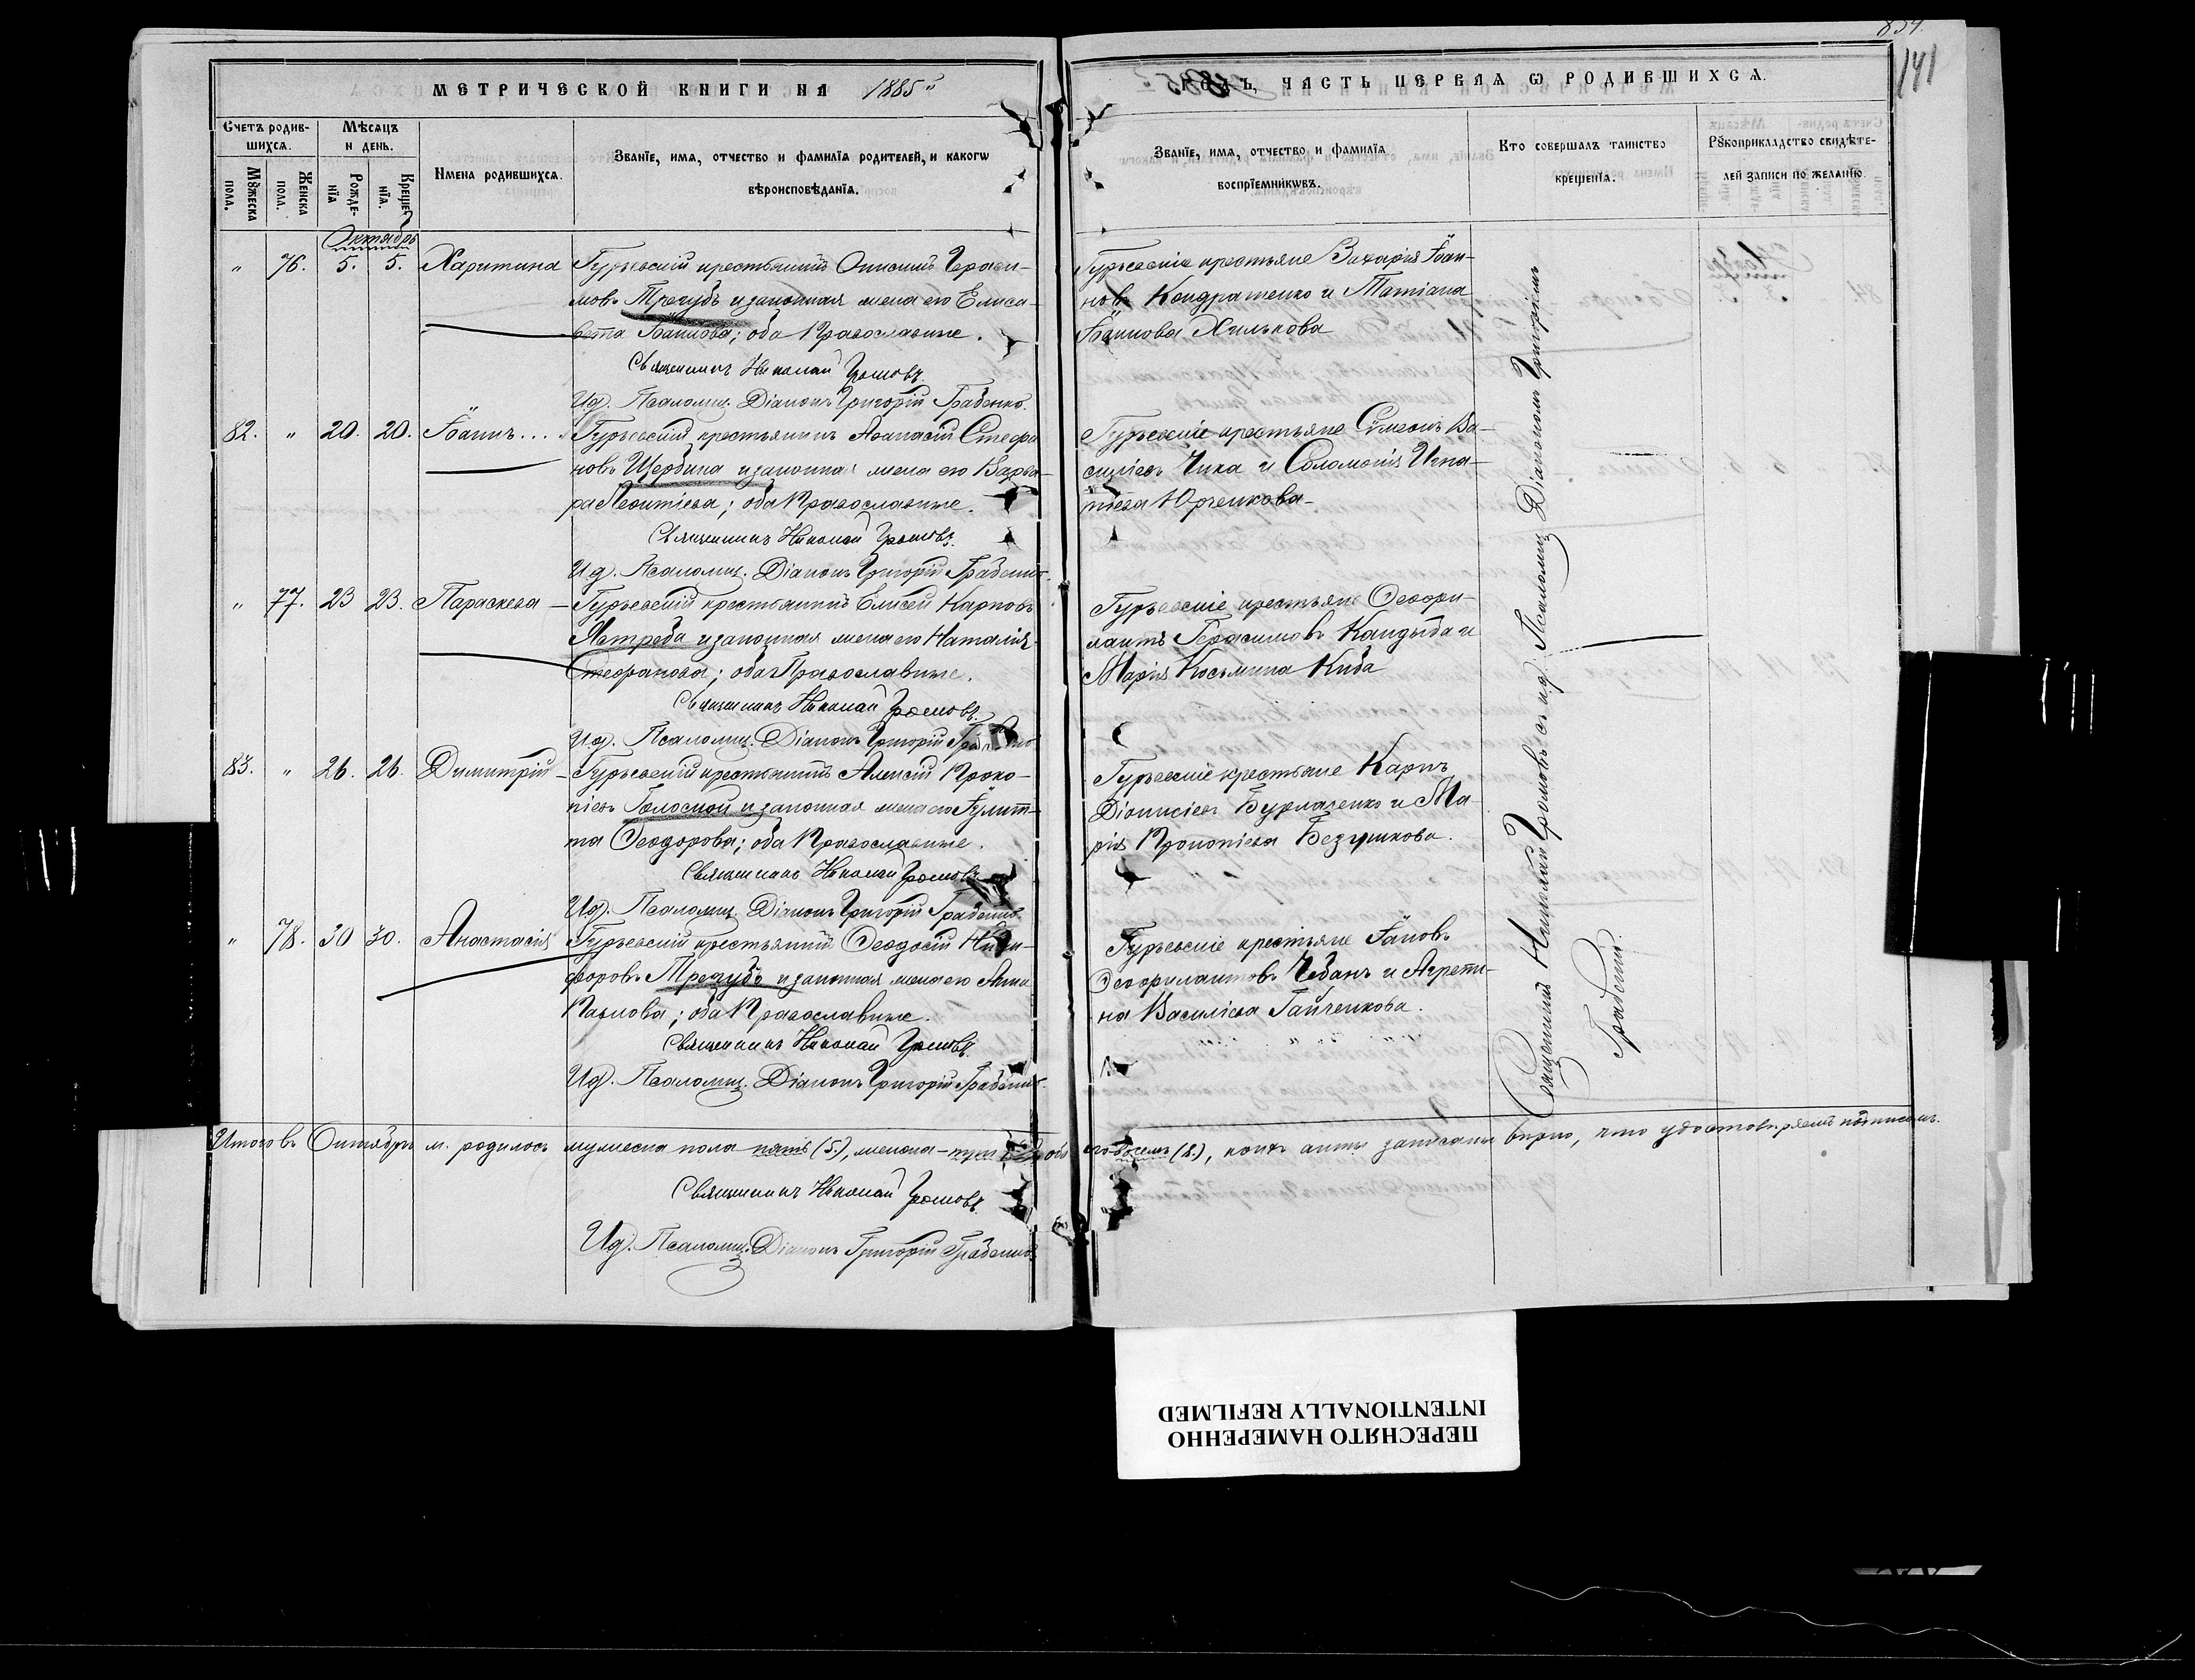 834.
141
МЕТРИЧЕСКОЙ КНИГИ НА 1885й
ГОДЪ, ЧАСТЬ ПЕРВАЯ Ѡ РОДИВШИХСЯ.
Счетъ родив-
шихся.
Мѣсяцъ
и день.
Мꙋжеска
пола.
Женска
пола.
Рожде-
нїя
Креще-
нїя.
Имена родившихся.
Званїе, имя, отчество и фамилїя родителей, и какогѡ
вѣроисповѣданїя.
Званїе, имя, отчество и фамилїя
воспрїемникѡвъ.
Кто совершалъ таинство
крещенїя.
Рꙋкоприкладство свидѣте-
лей записи по желанїю.
Октябрь
" 76. 5. 5. Харитина
Гурьевскій крестьянинъ Онисимъ Гераси-
мовъ Трегубъ и законная жена его Елиса-
вета Іоаннова; оба Православные.
Священникъ Николай Громовъ.
И.д. Псаломщ. Діаконъ Григорій Грабенко.
Гурьевскіе крестьяне Захарія Іоан-
новъ Кондратенко и Татіана
Іоаннова Хилькова
82. " 20. 20. Іоаннъ...
Гурьевскій крестьянинъ Аѳанасій Стефа
новъ Щербина и законная жена его Варва-
ра Леонтіева; оба Православные.
Священникъ Николай Громовъ.
И.д. Псаломщ. Діаконъ Григорій Грабенко.
Гурьевскіе крестьяне Сѵмеонъ Ва-
силіевъ Чика и Соломонія Игна-
тіева Юрченкова
" 77. 23 23. Параскева
Гурьевскій крестьянинъ Елисей Карповъ
Ястреба и законная жена его Наталія
Стефанова; оба Православные.
Священникъ Николай Громовъ.
И.д. Псаломщ. Діаконъ Григорій
Гурьевскіе крестьяне Ѳеофи-
лактъ Герасимовъ Кандыба и
Марія Косьмина Киба
83. " 26. 26. Димитрій
Гурьевскій крестьянинъ Алексій Проко-
піевъ Голосной и законная жена его Іулит-
та Ѳеодорова; оба Православные.
Священникъ Николай Громовъ
И.д. Псаломщ. Діаконъ Григорій Грабенко.
Гурьевскіе крестьяне Карпъ
Діонисіевъ Бурлаченко и Ма-
рія Прокопіева
" 78. 30 30. Анастасія
Гурьевскій крестьянинъ Ѳеодосій Ники-
форовъ Трегубъ и законная жена его Анна
Павлова; оба Православные.
Священникъ Николай Громовъ.
И.д. Псаломщ. Діаконъ Григорій Грабенко.
Гурьевскіе крестьяне Іаковъ
Ѳеофилактовъ Чебанъ и Агрепи-
на Василіева Гайченкова.
Священникъ Николай Громовъ съ и.д. Псаломщ. Діакономъ Григоріемъ
Грабенко.
Итого въ Октябрѣ м. родилось мужеска пола пять (5.), женска - три обо его восемь (8.), коихъ акты записаны вѣрно, что удостовѣряемъ подписомъ.
Священникъ Николай Громовъ.
И.д. Псаломщ. Діаконъ Григорій Грабенко
ПЕРЕСНЯТО НАМЕРЕННО
INTENTIONALLY REFILMED